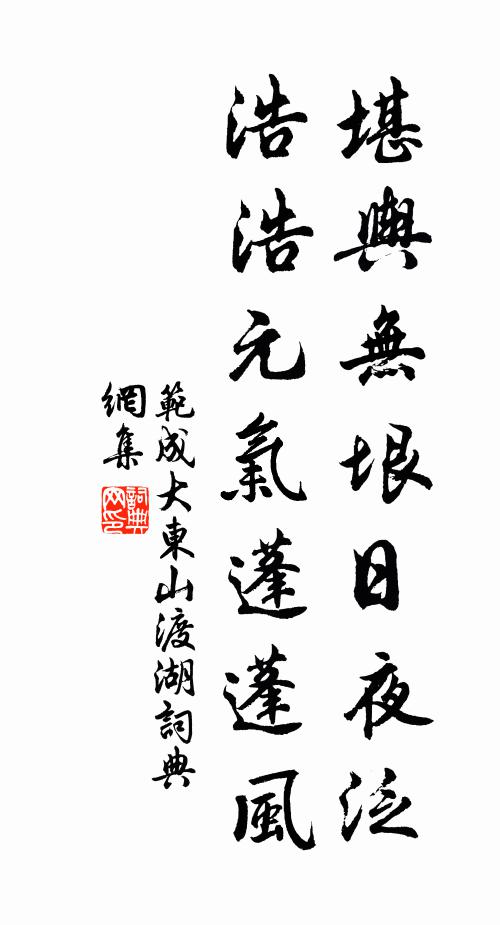 堪輿無垠日夜泛
浩浩元氣蓬蓬風
範成大東山渡湖詞典
網集
詞典
网印